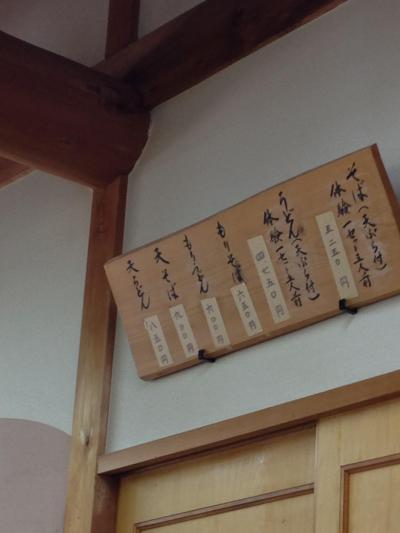 そば(天ぷら付)
体験一セット五人前
五二五〇円
うどん(天ぷら付)
体験一セット五人前
四七五〇円
もりそば
六五〇円
もりうどん
六〇〇円
天そば
九〇〇円
天うどん
八五〇円